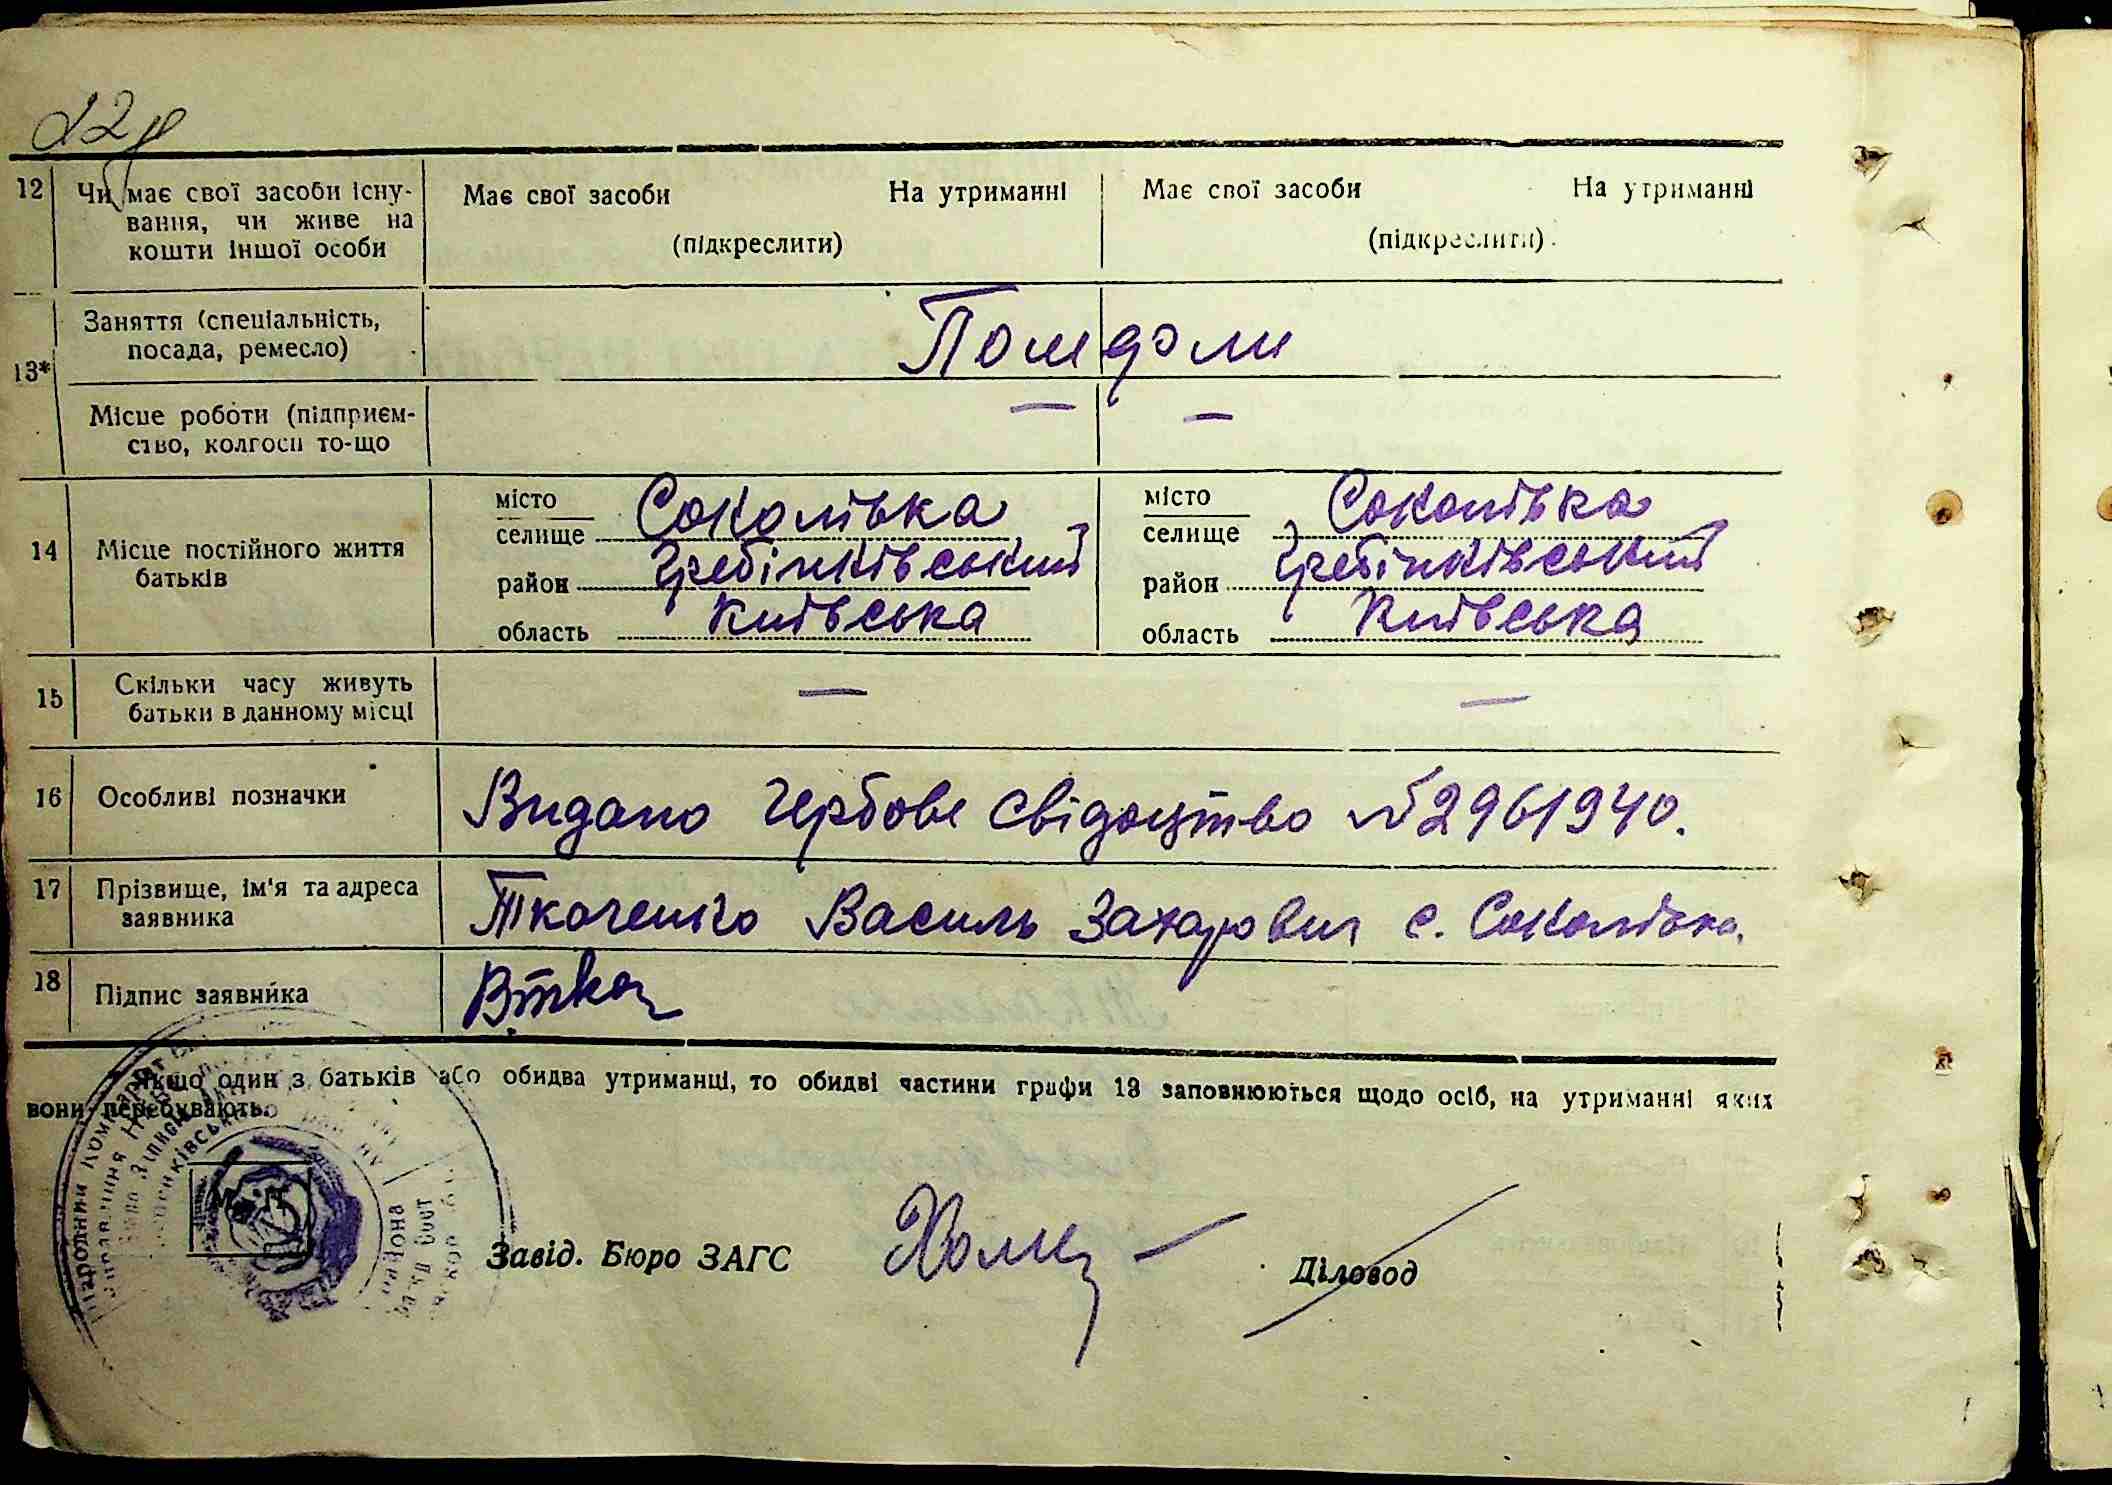 12 Чи має свої засоби існу-
вання, чи живе на
кошти іншої особи
Має свої засоби На утриманні
(підкреслити)
Має свої засоби На утриманні
(підкреслити)
13* Заняття (спеціальність,
посада, ремесло)
Померли
Місце роботи (підприєм-
ство, колгосп то-що
— —
14 Місце постійного життя
батьків
місто
селище Соколівка
район Гребінківський
область Київська
місто
селище Соколівка
район Гребінківський
область Київська
15 Скільки часу живуть
батьки в данному місці
— —
16 Особливі позначки
Видано гербове свідоцтво № 2961940.
17 Прізвище, ім'я та адреса
заявника
Ткаченко Василь Захарович с. Соколівка.
18 Підпис заявника
ВТкач
Якщо один з батьків або обидва утриманці, то обидві частини графи 13 заповнюються щодо осіб, на утриманні яких
вони перебувають.
М. П.
Завід. Бюро ЗАГС
Діловод